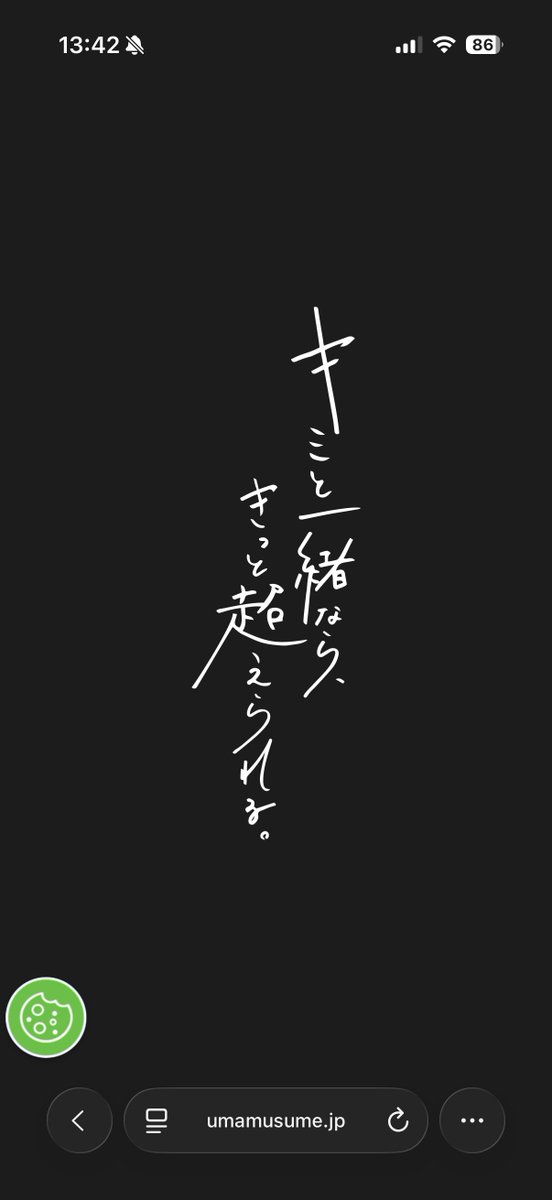 13:42
86
キミと一緒なら、
きっと超えられる。
umamusume.jp